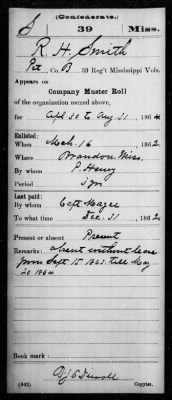 S
(Confederate.)
39
Miss.
R. H. Smith
Pvt, Co. B, 39 Reg't Mississippi Vols.
Appears on
Company Muster Roll
of the organization named above,
for Apl. 30 to Aug 31, 1864.
Enlisted:
When Mch. 16, 1862
Where Brandon Miss.
By whom P. Henry
Period 3 yrs
Last paid:
By whom Capt Magee
To what time Dec. 31, 1862
Present or absent Present
Remarks: absent without leave
from Sept 15 1863 till May
20 1864
Book mark:
(642)
Copyist.